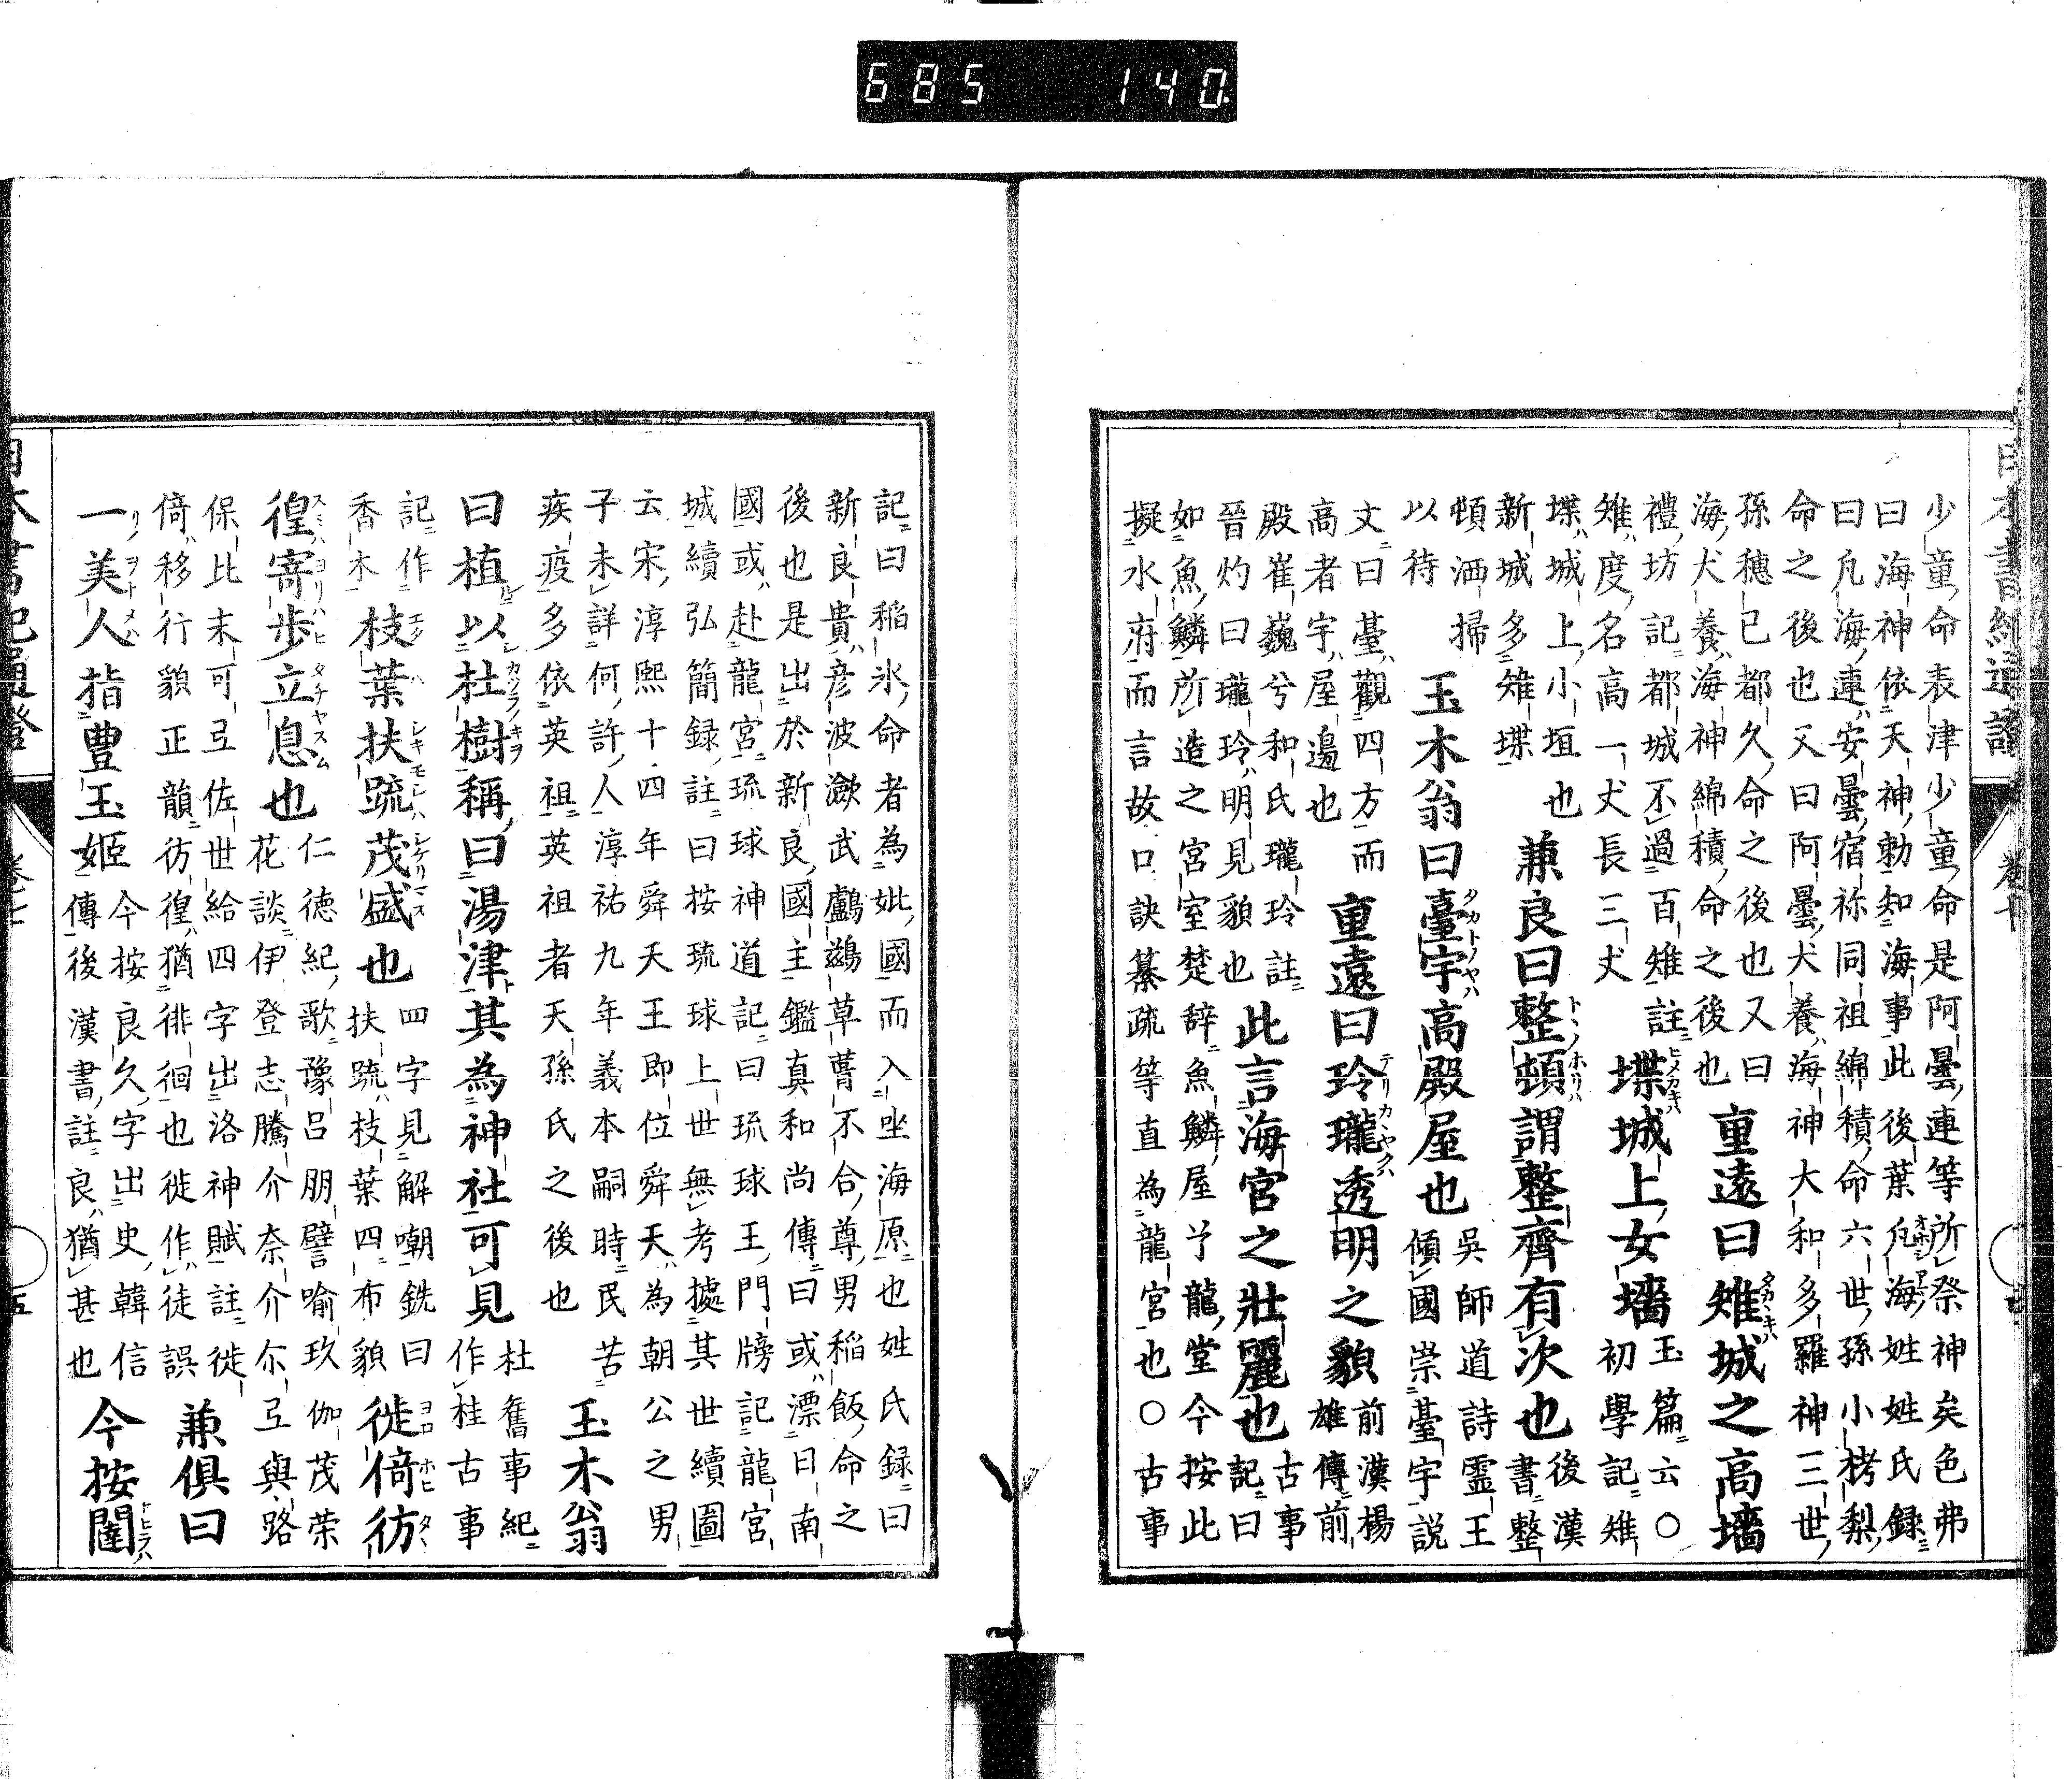 685 140.
少童命表津少童命是阿曇連等所祭神矣色弗
曰海神依天神勅知海事此後葉凡海姓姓氏録
曰凡海連安曇宿祢同祖綿積命六世孫小栲梨
命之後也又曰阿曇犬養海神大和多羅神三世
孫穗已都久命之後也又曰
海犬養海神綿積命之後也
重遠曰雉城之高墻
禮坊記都城不過百雉註
雉度名高一丈長三丈
堞城上女墻
玉篇云〇
初學記雉
堞城上小垣也
新城多雉堞
兼良曰整頓謂整齊有次也
後漢
書整
頓洒掃
以待
玉木翁曰臺宇高殿屋也
吳師道詩霊王
傾國崇臺宇説
文曰臺觀四方而
高者宇屋邊也
重遠曰玲瓏透明之貌
前漢楊
雄傳前
殿崔巍兮和氏瓏玲註
晉灼曰瓏玲明見貌也
此言海宮之壯麗也
古事
記曰
如魚鱗所造之宮室楚辞魚鱗屋兮龍堂今按此
擬水府而言故口訣纂疏等直為龍宮也〇古事
記曰稲氷命者為妣國而入坐海原也姓氏録曰
新良貴彦波瀲武鸕鷀草葺不合尊男稲飯命之
後也是出於新良國主鑑真和尚傳曰或漂日南
國或赴龍宮琉球神道記曰琉球王門牓記龍宮
城續弘簡録註曰按琉球上世無考據其世續圖
云宋淳熙十四年舜天王即位舜天為朝公之男
子未詳何許人淳祐九年義本嗣時民苦
疾疫多依英祖英祖者天孫氏之後也
玉木翁
曰植以杜樹稱曰湯津其為神社可見
杜舊事紀
作桂古事
記作
香木
枝葉扶疏茂盛也
四字見解嘲銑曰
扶疏枝葉四布貌
徙倚彷
徨寄歩立息也
仁徳紀歌豫呂朋譬喻玖伽茂荣
花談伊登志騰介奈介尒弖與路
保比末可弖佐世給四字出洛神賦註徙
倚移行貌正韻彷徨猶徘徊也徙作徒誤
兼俱曰
一美人指豊玉姬
今按良久字出史韓信
傳後漢書註良猶甚也
今按闔